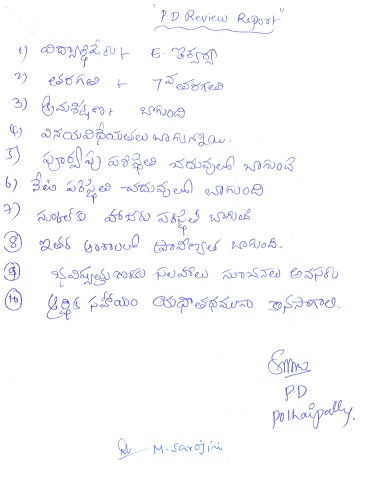 "PD Review Report"
1) విద్యార్థి పేరు + E.
2) తరగతి + 7వ తరగతి
3) క్రమశిక్షణ + బాగుంది
4) వినయవిధేయతలు బాగున్నాయి.
5) పూర్వపు పరిస్థితి చదువులో బాగుంది
6) నేటి పరిస్థితి చదువులో బాగుంది
7) స్కూల్‌కు హాజరు పరిస్థితి బాగుంది
8) ఇతర అంశాలలో ప్రావీణ్యత బాగుంది.
9) భవిష్యత్తు సలహాలు సూచనలు అవసరం
10) ఆర్థిక సహాయం యథాతథముగా కొనసాగాలి.
PD
Polkampally
M. Sarojini